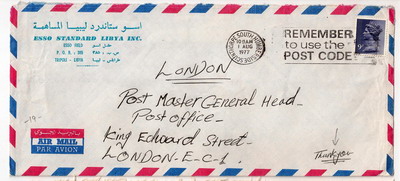 اسو ستاندرد ليبيا المساهمة
ESSO STANDARD LIBYA INC.
ESSO FIELD
P. O. B. 385
TRIPOLI - LIBYA
طرابلس - ليبيا
SCUNTHORPE, SOUTH HUMBERSIDE
10 30 AM
1 AUG
1977
REMEMBER
to use the
POST CODE
9
LONDON
Post Master General Head-
Post office-
King Edward Street-
LONDON-E-C1.
-19-
بالبريد الجوي
AIR MAIL
PAR AVION
Thank you